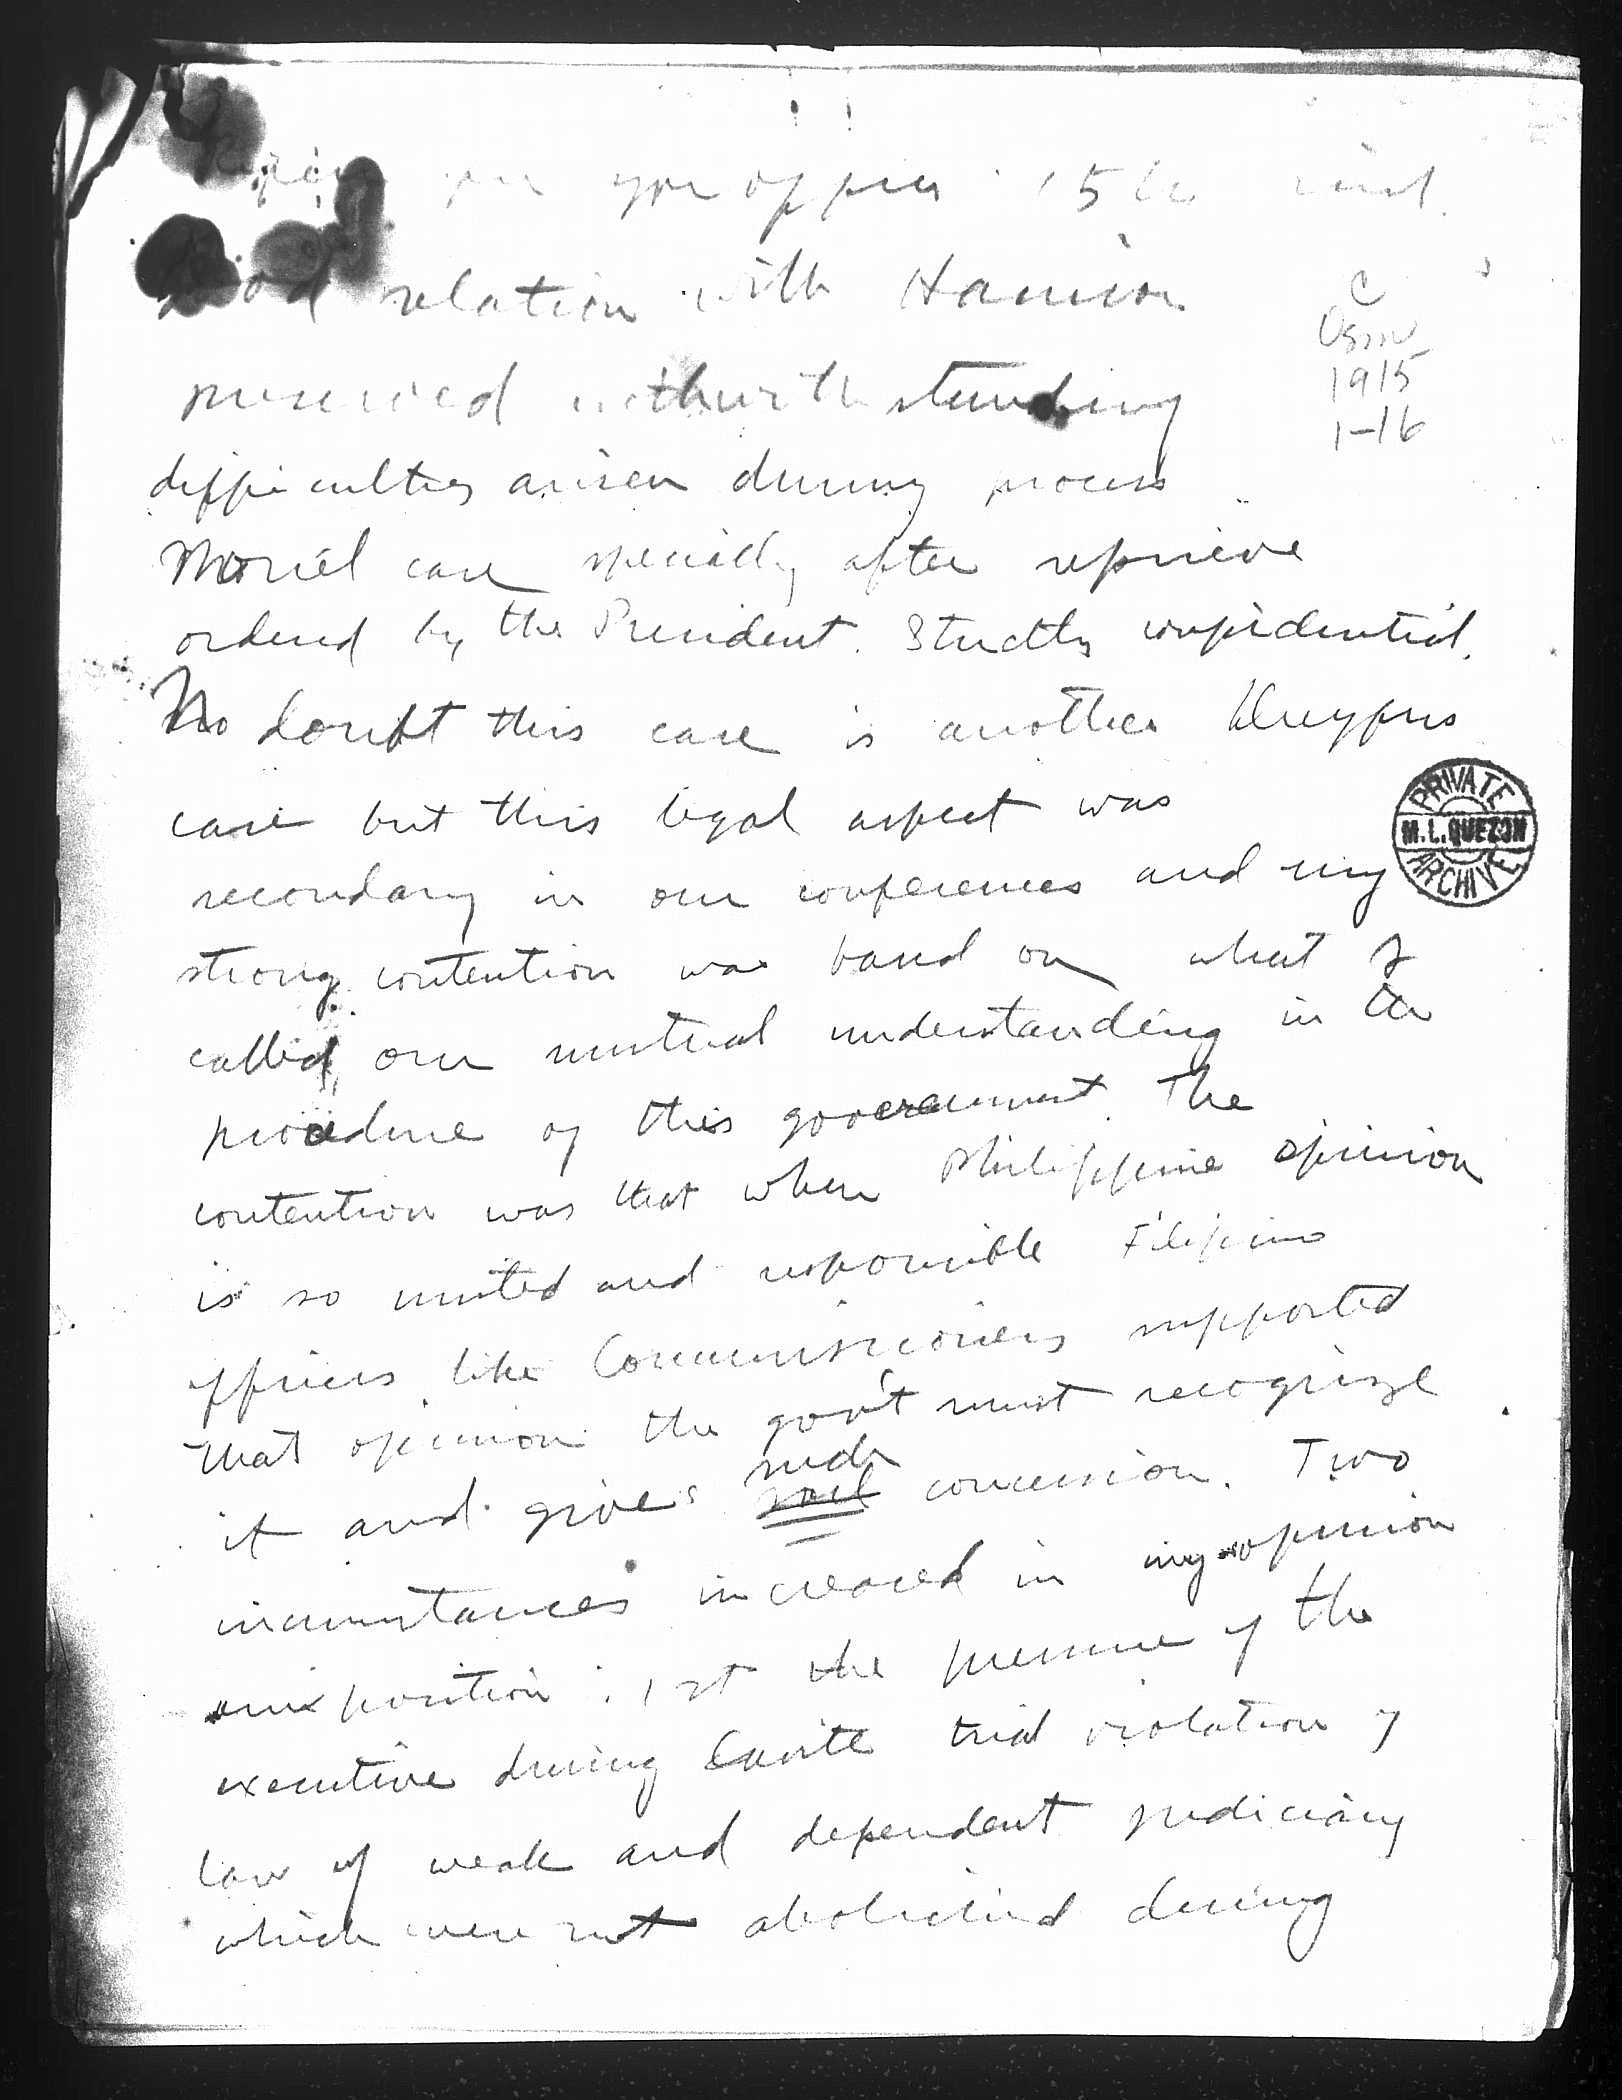 15th inst.
Good relation with Harrison
C
Osm
1915
1-16
preserved notwithstanding
difficulties arisen during process
Noriel case specially after reprieve
ordered by the President. Strictly confidential.
No doubt this case is another Dreyfus
case but this legal aspect was
PRIVATE
M.L. QUEZON
ARCHIVE
secondary in our conferences and my
strong contention was based on what I
called our mutual understanding in the
procedure of this government. The
contention was that when Philippine opinion
is so united and responsible Filipino
officers like Commissioners supported
that opinion the gov't must recognize
it and give such concession. Two
circumstances increased in my opinion
our position: 1st the pressure of the
executive during Cavite trial violation of
law of weak and dependent judiciary
which were not abolished during